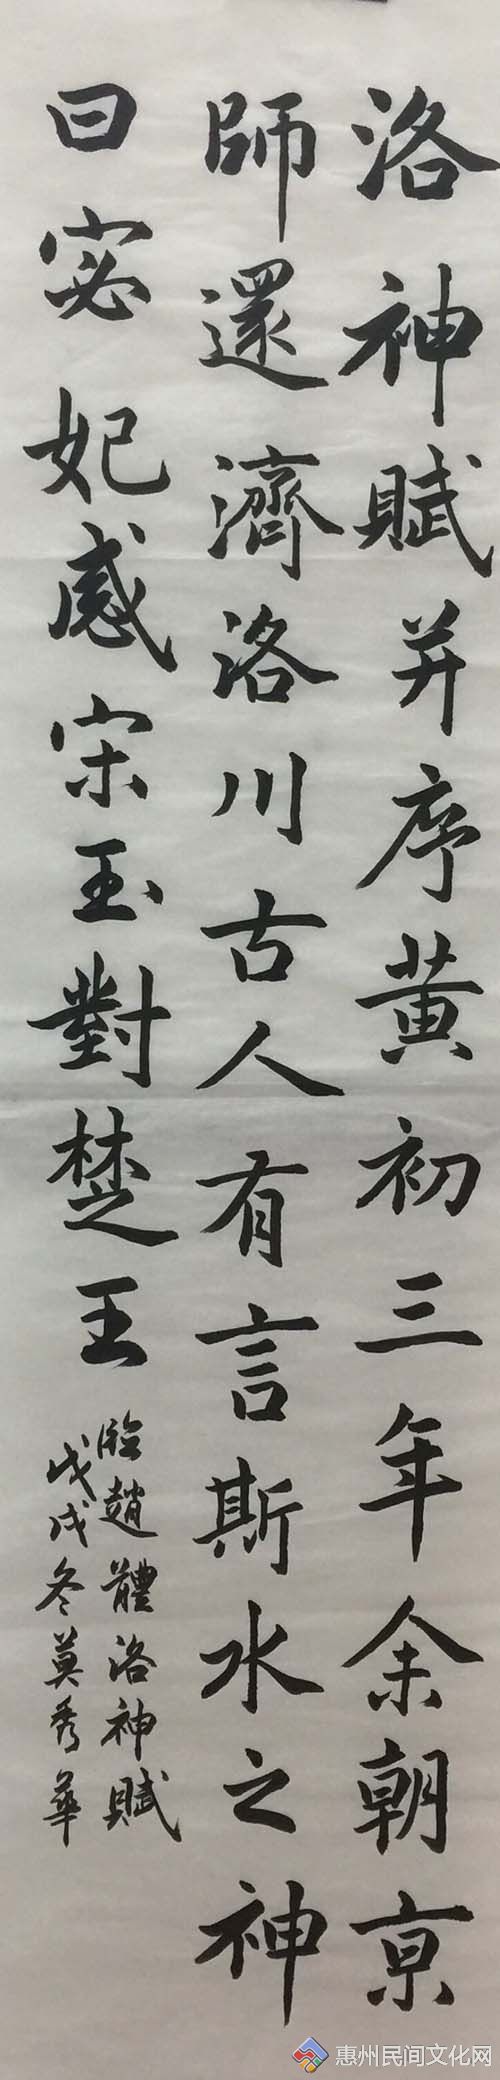 洛神賦并序黄初三年余朝京
師還濟洛川古人有言斯水之神
曰宓妃感宋玉對楚王
臨趙體洛神賦
戊戌冬莫秀華
惠州民间文化网